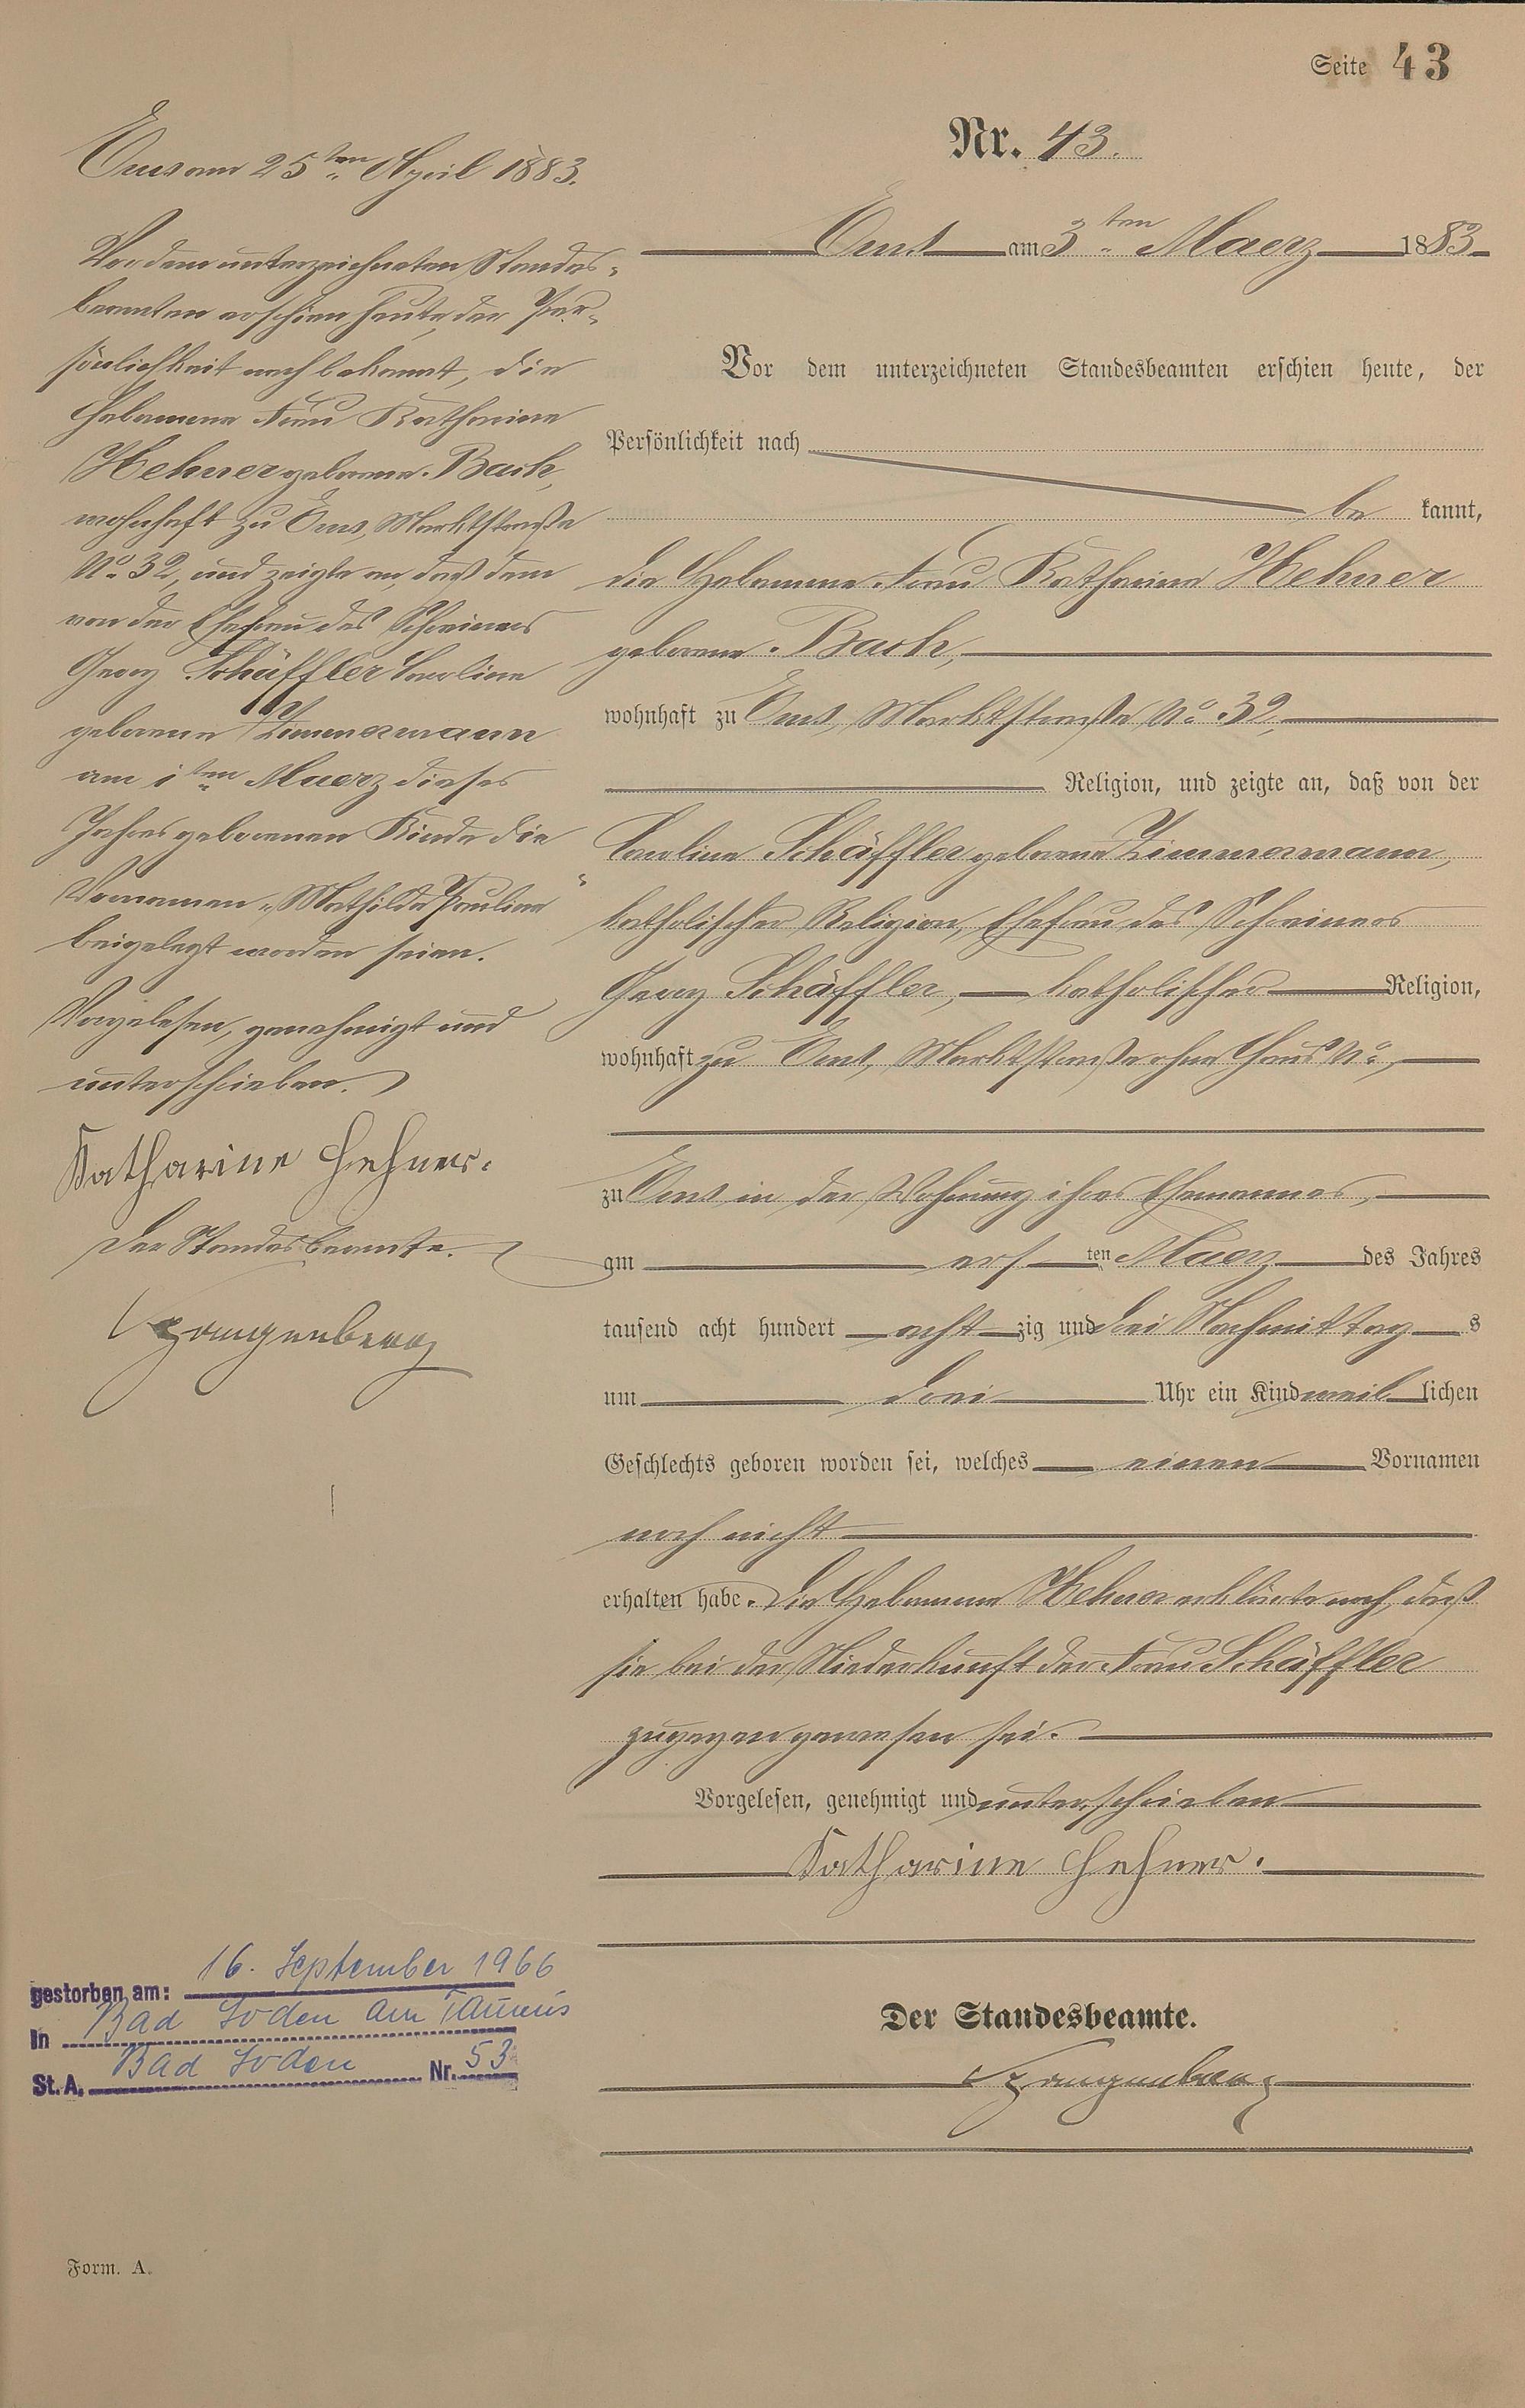 Seite 43
Nr. 43.
Ems am 3ten Maerz 1883
Vor dem unterzeichneten Standesbeamten erschien heute, der
Persönlichkeit nach
be kannt,
die Hebamme Frau Katharina Hehner
geborene Bach,
wohnhaft zu Ems, Marktstraße No 32,
Religion, und zeigte an, daß von der
Caroline Schäffler geborene Zimmermann,
katholischer Religion, Ehefrau des Schreiners
Georg Schäffler, katholischer Religion,
wohnhaft zu Ems, Marktstraße ohne Haus No,
zu Ems in der Wohnung ihres Ehemannes,
am ersten Maerz des Jahres
tausend acht hundert acht zig und drei Nachmittag s
um drei Uhr ein Kind weib lichen
Geschlechts geboren worden sei, welches einen Vornamen
noch nicht
erhalten habe. Die Hebamme Hehner erklärte noch, daß
sie bei der Niederkunft der Frau Schäffler
zugegen gewesen sei.
Vorgelesen, genehmigt und unterschrieben
Katharine Hehner.
Der Standesbeamte.
Spangenberg
Ems am 25ten April 1883.
Vor dem unterzeichneten Standes-
beamten erschien heute, der Per-
sönlichkeit nach bekannt, die
Hebamme Frau Katharina
Hehner geborene Bach,
wohnhaft zu Ems, Marktstraße
No 32, und zeigte an, daß dem
von der Ehefrau des Schreiners
Georg Schäffler Caroline
geborene Zimmermann
am 1ten Maerz dieses
Jahres geborenen Kinde die
Vornamen „Mathilde Pauline“
beigelegt worden seien.
Vorgelesen, genehmigt und
unterschrieben.
Katharine Hehner.
Der Standesbeamte.
Spangenberg
gestorben am: 16. September 1966
in Bad Soden am Taunus
St. A. Bad Soden Nr. 53
Form. A.